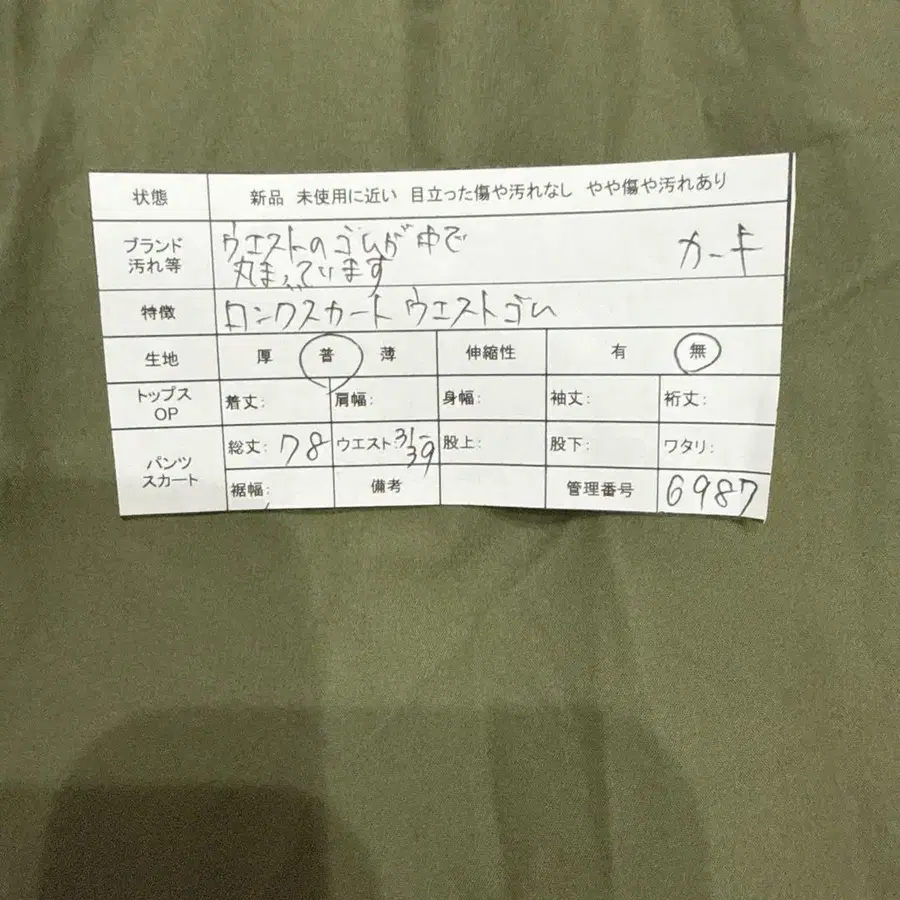 状態 新品 未使用に近い 目立った傷や汚れなし やや傷や汚れあり
ブランド 汚れ等 ウエストのゴムが中で 丸まっています カーキ
特徴 ロングスカート ウエストゴム
生地 厚 普 薄 伸縮性 有 無
トップス OP 着丈: 肩幅: 身幅: 袖丈: 裄丈:
パンツ スカート 総丈: 78 ウエスト: 31~39 股上: 股下: ワタリ:
裾幅: 備考 管理番号 6987